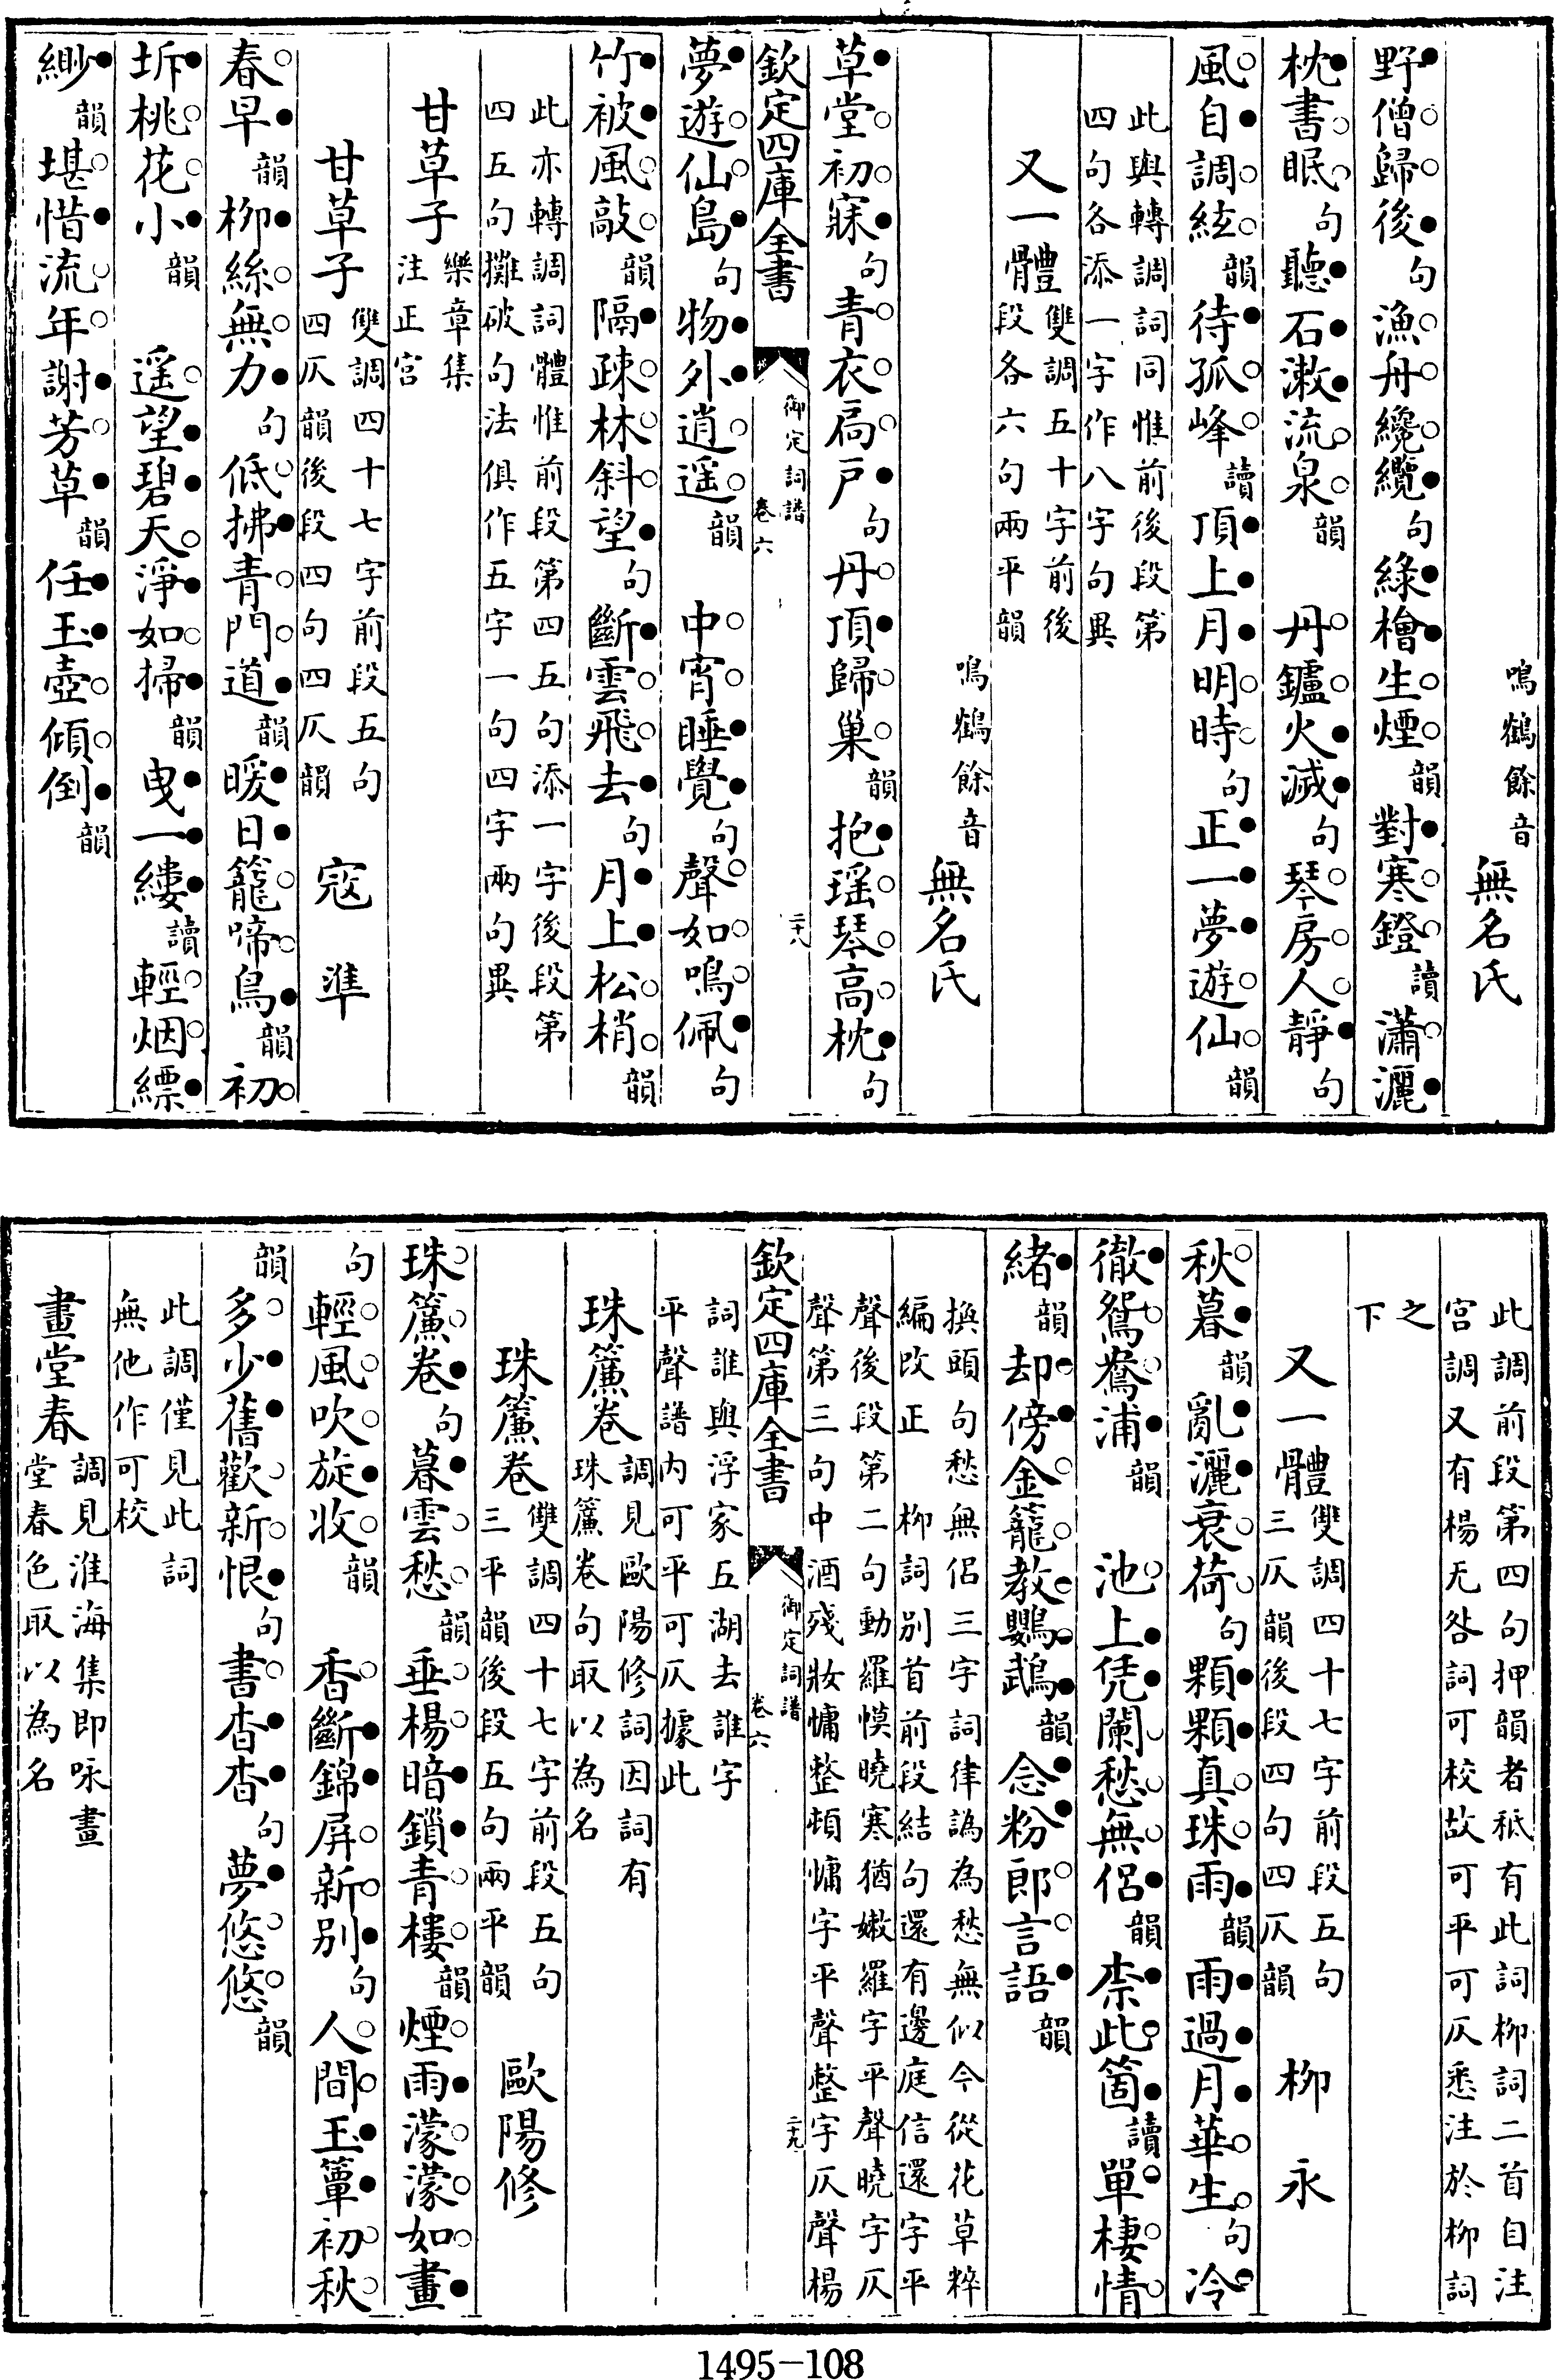 鳴鶴餘音 無名氏
野僧歸後句漁舟纔纜句綠檜生煙韻對寒鐙讀瀟灑
枕書眠句聽石漱流泉韻 丹鑪火滅句琴房人靜句
風自調絃韻待孤峰讀頂上月明時句正一夢遊仙韻
此與轉調詞同惟前後段第
四句各添一字作八字句異
又一體 雙調五十字前後
段各六句兩平韻
鳴鶴餘音 無名氏
草堂初寐句青衣扃戸句丹頂歸巢韻抱瑶琴高枕句
欽定四庫全書 御定詞譜 卷六 二十八
夢遊仙島句物外逍遥韻 中宵睡覺句聲如鳴佩句
竹被風敲韻隔疎林斜望句斷雲飛去句月上松梢韻
此亦轉調詞體惟前段第四五句添一字後段第
四五句攤破句法俱作五字一句四字兩句異
甘草子 樂章集
注正宮
甘草子 雙調四十七字前段五句
四仄韻後段四句四仄韻 寇準
春早韻柳絲無力句低拂青門道韻暖日籠啼鳥韻初
坼桃花小韻 遥望碧天淨如掃韻曳一縷讀輕烟縹
緲韻堪惜流年謝芳草韻任玉壺傾倒韻
此調前段第四句押韻者秪有此詞柳詞二首自注
宮調又有楊无咎詞可校故可平可仄悉注於柳詞
之
下
又一體 雙調四十七字前段五句
三仄韻後段四句四仄韻 柳永
秋暮韻亂灑衰荷句顆顆真珠雨韻雨過月華生句冷
徹鴛鴦浦韻 池上凭闌愁無侶韻柰此箇讀單棲情
緒韻却傍金籠教鸚鵡韻念粉郎言語韻
換頭句愁無侶三字詞律譌為愁無似今從花草粹
編改正 柳詞别首前段結句還有邊庭信還字平
聲後段第二句動羅幙曉寒猶嫩羅字平聲曉字仄
聲第三句中酒殘妝慵整頓慵字平聲整字仄聲楊
欽定四庫全書 御定詞譜 卷六 二十九
詞誰與浮家五湖去誰字
平聲譜内可平可仄據此
珠簾卷 調見歐陽修詞因詞有
珠簾卷句取以為名
珠簾卷 雙調四十七字前段五句
三平韻後段五句兩平韻 歐陽修
珠簾卷句暮雲愁韻垂楊暗鎖青樓韻煙雨濛濛如畫
句輕風吹旋收韻 香斷錦屏新别句人間玉簟初秋
韻多少舊歡新恨句書杳杳句夢悠悠韻
此調僅見此詞
無他作可校
畫堂春 調見淮海集即咏畫
堂春色取以為名
1495-108